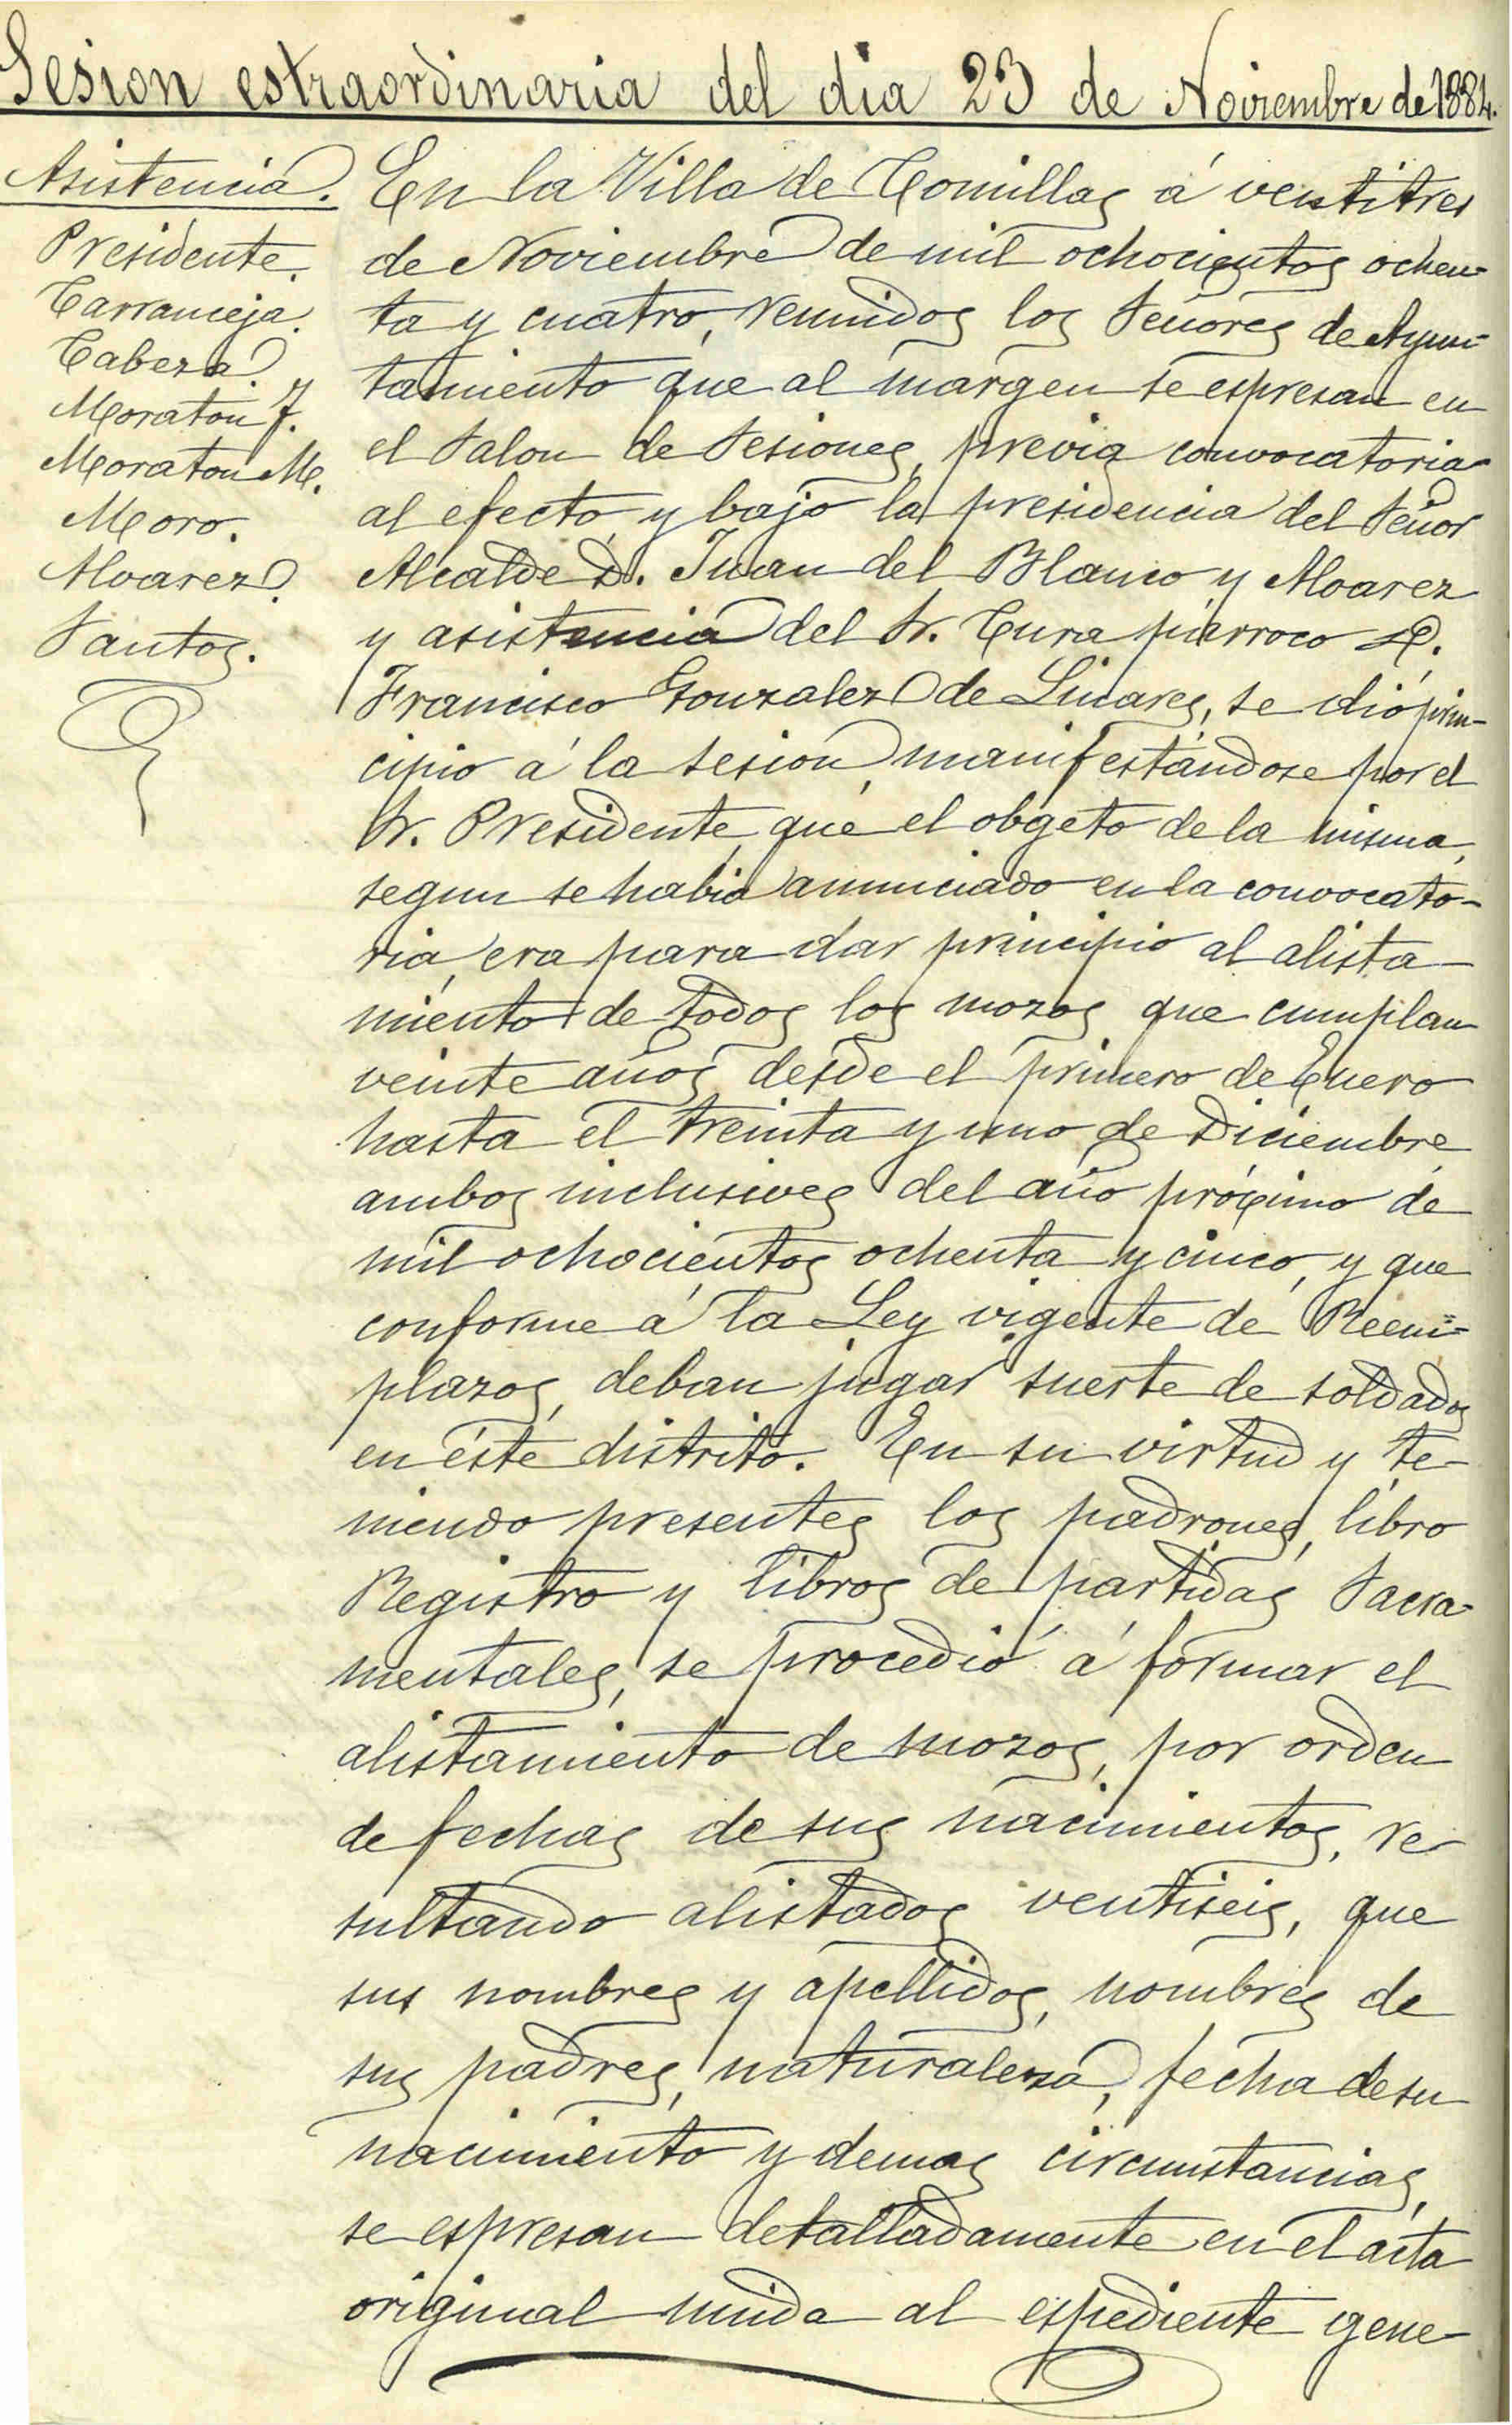 Sesion estraordinaria del dia 23 de Noviembre de 1884.
Asistencia.
Presidente.
Carranceja.
Cabeza.
Moraton J.
Moraton M.
Moro.
Alvarez.
Santos.
En la Villa de Comillas á ventitres
de Noviembre de mil ochocientos ochen-
ta y cuatro, reunidos los Señores de Ayun-
tamiento que al margen se espresan en
el Salon de Sesiones, previa convocatoria
al efecto y bajo la presidencia del Señor
Alcalde D. Juan del Blanco y Alvarez
y asistencia del Sr. Cura párroco D.
Francisco Gonzalez de Linares, se dió prin-
cipio á la sesion, manifestándose por el
Sr. Presidente, que el obgeto de la misma,
segun se habia anunciado en la convocato-
ria, era para dar principio al alista-
miento de todos los mozos que cumplan
veinte años desde el primero de Enero
hasta el treinta y uno de Diciembre
ambos inclusives del año próximo de
mil ochocientos ochenta y cinco, y que
conforme á la Ley vigente de Reem-
plazos, deban jugar suerte de soldados
en éste distrito. En su virtud y te-
niendo presentes los padrones, libro
Registro y libros de partidas Sacra-
mentales, se procedió á formar el
alistamiento de mozos, por orden
de fechas de sus nacimientos, re-
sultando alistados ventiseis, que
sus nombres y apellidos, nombres de
sus padres, naturaleza, fecha de su
nacimiento y demas circunstancias,
se espresan detalladamente en el acta
original unida al espediente gene-